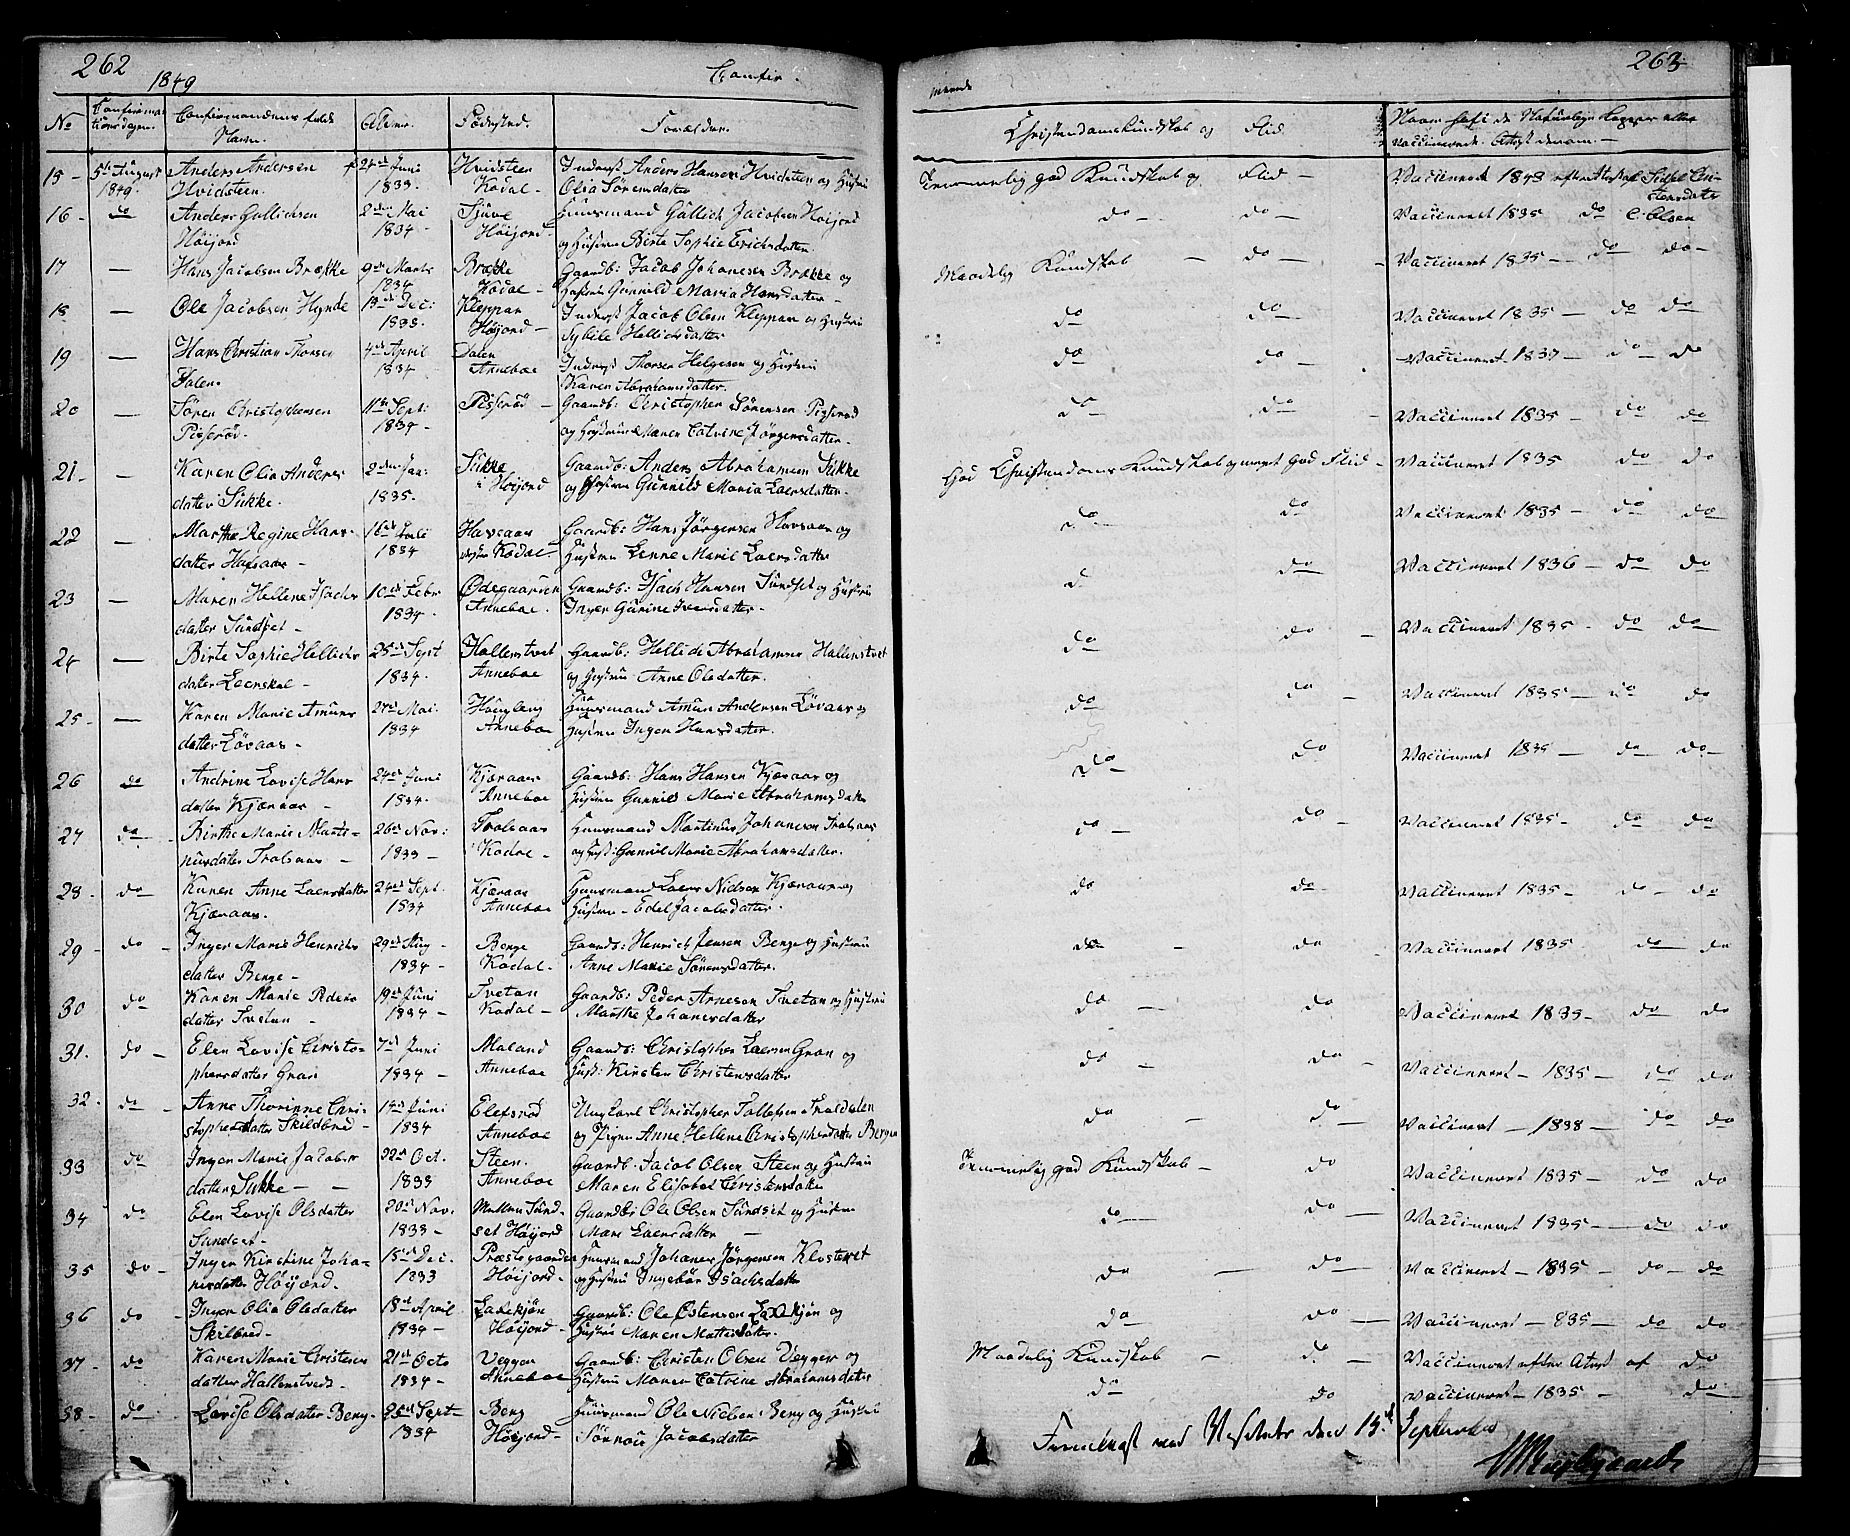 262
1849
Confir
No
Confirma-
tionsdagen.
Confirmandens fulde
Navn.
Alder.
Fødested.
Forældre.
15 - 5te August Anders Andersen 24de Juni Hvidsteen Inderst Anders Hansen Hvidsteen og Hustru
1849. Hvidsteen. 1833. Kodal - Olia Sørensdatter
16 - do Anders Gullichsen 2den Mai Tjuve Huusmand Gullich Jacobsen Høijord
Høijord 1834 - Høijord - og Hustru Birte Sophie Erichsdatter.
17 — Hans Jacobsen Brække 9de Marts Brække Gaardb: Jacob Johanesen Brække og
1834 Kodal - Hustru Gunnild Maria Hansdatter -
18 — Ole Jacobsen Hynde 13de Dec: Kleppan Inderst Jacob Olsen Kleppan og Hustru
1833. Høijord - Sybile Hellichsdatter
19 — Hans Christian Thorsen 4de April Dalen Inderst Thorsen Helgesen og Hustru
Dalen. 1834 Anneboe Karen Abrahamsdatter.
20 — Søren Christophersen 11te Sept: Pisserød - Gaardb: Christopher Sørensen Pisserød
Pisserød. 1834 - og Hustrue Maren Catrine Jørgensdatter -
21 - — Karen Olia Anders 2den Jan: Sukke Gaardb: Anders Abrahamsen Sukke
datter Sukke. 1835. i Høijord og Hustrue Gunnild Maria Laersdatter.
22 — Marthe Regine Hans- 16de Juli Havsaas Gaardb: Hans Jørgensen Havsaas og
datter Havsaas - 1834 Kodal - Hustru Lenne Marie Laersdatter
23 — Maren Hellene Isachs 10de Febr Ødegaarden Gaardb: Isach Hansen Sundset og Hustru
datter Sundset - 1834 - Anneboe. Inger Gurine Iversdatter -
24 — Birte Sophie Hellichs 25de Sept Hallenstvet Gaardb: Hellich Abrahamsen Hallenstvet
datter - 1834. Anneboe og Hustru Anne Olsdatter.
25 - — Karen Marie Amuns 27de Mai. Huusmand Amun Andersen Løvaas og
datter Løvaas - 1834 Anneboe Hustru Inger Hansdatter.
26 do Andrine Lovise Hans 24de Juni Kjæraas Gaardb: Hans Hansen Kjæraas og
datter Kjæraas - 1834. Anneboe Hustru Gunnild Marie Abrahamsdatter
27 do - Birthe Marie Marti- 26de Nov: Trolsaas Huusmand Martinus Johansen Trolsaas
nusdatter Trolsaas - 1833 - Kodal - og Hust: Gunnil Marie Abrahamsdatter.
28 - do - Karen Anne Laersdatter 24de Sept. Kjæraas Huusmand Laers Nielsen Kjæraas og
Kjæraas. 1834 Anneboe Hustru - Edel Jacobsdatter.
29 - do - Inger Marie Henrichs 29de Aug - Berge Gaardb: Henrich Jensen Berge og Hustru
datter Berge - 1834 - Kodal - Anne Marie Sørensdatter.
30 do Karen Marie Peders 19de Juni Tvetan Gaardb: Peder Arnesen Tvetan og Hustru
datter Tvetan - 1834 - Kodal - Marthe Johanesdatter
31. do - Elen Lovise Christo- 7de Juni Maland Gaardb: Christopher Laersen Gran og
phersdatter Gran 1834 - Anneboe Hust: Kirsten Christensdatter
32. do - Anne Thorinne Chri- 14de Juni Elefsrød Ungkarl Christopher Tollefsen Troldalen
stophersdatter Skilbred - 1834 Anneboe og Pigen Anne Hellene Christophersdatter Bergen
33 do Inger Marie Jacobs 22de Oct. Steen. Gaardb: Jacob Olsen Steen og Hustru
datter Sukke - - 1833 Anneboe Maren Elisabet Christensdatter
34 do Elen Lovise Olsdatter 20de Nov. Mellem Sund- Gaardb: Ole Olsen Sundset og Hustru
Sundset - 1833 - set Høijord Mare Laersdatter -
35 do - Inger Kirstine Joha- 15de Dec. Præstegaarden Huusmand Johanes Jørgensen Klosteret
nesdatter Høijord. 1833 Høijord - og Hustru Ingebør Isachsdatter
36 do - Inger Olia Olsdatter 18de April. Ladekjøn Gaardb: Ole Østensen Ladekjøn og
Skilbred - 1834 - Høijord - Hustru Maren Mattisdatter.
37 - do Karen Marie Christens 21de Octo Veggen Gaardb: Christen Olsen Veggen og
datter Hallenstvedt - 1834 - Anneboe Hustru Maren Catrine Abrahamsdatter
38 - do - Lovise Olsdatter Berg - 25de Sept - Berg Huusmand Ole Nielsen Berg og Hustru
1834 Høijord - Jacobsdatter
263
merede
Christendomskundskab og Flid
Naar havt de Naturlige Kopper eller
vaccinerede. Attest derom. -
Temmelig god Kundskab og Flid - Vaccineret 1843 efter Attest af Sidsel Chri-
stensdatter
do - do - Vaccineret 1835 do C: Olsen
Maadelig Kundskab - do - Vaccineret 1835 - do do -
do do - Vaccineret 1835 - do do
do do - Vaccineret 1837 - do - do
do do - Vaccineret 1835 - do do
God Christendoms Kundskab og meget god Flid - Vaccineret 1835 do do
do do Vaccineret 1835 - do do
do do Vaccineret 1836 - do do
do do - Vaccineret 1835 - do do -
do do - Vaccineret 1835 - do do
do - do Vaccineret 1835 - do do -
do - do Vaccineret 1835 - do do
do do - Vaccineret 1835 - do - do
do - do Vaccineret 1835 - do - do
do - do Vaccineret 1835 - do do
do - do Vaccineret - 1835 - do do
do - do Vaccineret - 1838 - do do
Temmelig god Kundskab - do Vaccineret - 1835 - do do
do - do - Vaccineret - 1835 - do do
do - do Vaccineret - 1835 - do - do
do do - Vaccineret - 835 - do do
Maadelig Kundskab - do - Vaccineret efter Attest af do
do do Vaccineret - 1835 - do -
Fremlagt ved Visitats den 15de September